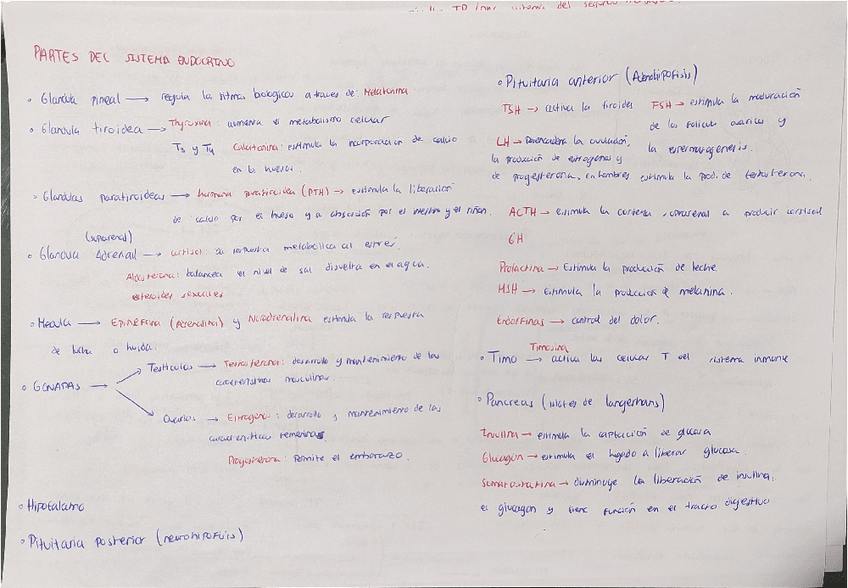 TD (por sistema del segundo
PARTES DEL SISTEMA ENDOCRINO
• Glandula pineal → regula los ritmos biologicos a traves de: Melatonina
• Glandula tiroidea → Thyroxina: aumenta el metabolismo celular
T3 y T4 Calcitonina: estimula la incorporacion de calcio
en los huesos.
• Glandulas paratiroideas → hormona paratiroidea (PTH) → estimula la liberación
de calcio por el hueso y a absorción por el intestino y el riñon.
(suprarenal)
• Glandula Adrenal → cortisol: su respuesta metabolica al estrés.
Aldosterona: balancea el nivel de sal disuelta en el agua.
esteroides sexuales
• Medula → Epinefrina (Adrenalina) y Noradrenalina estimula la respuesta
de lucha o huida.
• GONADAS → Testiculos → Testosterona: desarrollo y mantenimiento de las
caracteristicas masculinas
Ovarios → Estrogeno: desarrollo y mantenimiento de las
caracteristicas femeninas
Progesterona: Permite el embarazo.
• Hipotalamo
• Pituitaria posterior (neurohipofisis)
• Pituitaria anterior (Adenohipofisis)
TSH → activa la tiroides FSH → estimula la maduración
de los foliculos ovaricos y
LH → Desencadena la ovulación, la espermatogenesis.
la producción de estrogenos y
de progesterona, en hombres estimula la prod. de testosterona.
ACTH → estimula la corteza suprarenal a producir cortisol
GH
Prolactina → Estimula la producción de leche
MSH → Estimula la producción de melanina.
Endorfinas → control del dolor.
Timosina
• Timo → activa las celulas T del sistema inmune
• Pancreas (islotes de langerhans)
Insulina → estimula la captación de glucosa
Glucagón → estimula el higado a liberar glucosa.
Somatostatina → disminuye la liberación de insulina,
el glucagon y tiene función en el tracto digestivo